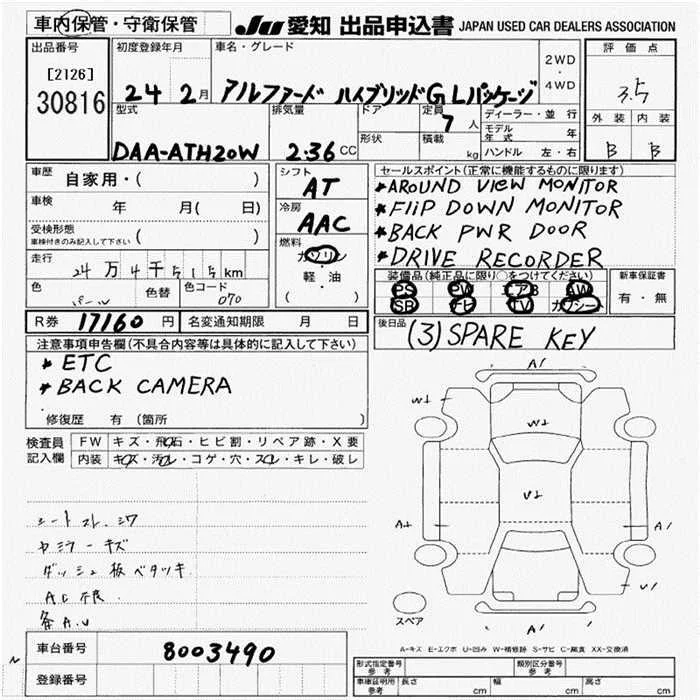 車内保管・守衛保管
JU 愛知 出品申込書 JAPAN USED CAR DEALERS ASSOCIATION
出品番号
[2126]
30816
初度登録年月
24 2月
車名・グレード
アルファード ハイブリッドG Lパッケージ
2WD
・
4WD
評価点
3.5
外装 内装
B B
型式
DAA-ATH20W
排気量
2.36 CC
ドア
形状
定員
7人
積載
kg
ディーラー・並行
モデル年式 年
ハンドル 左・右
車歴
自家用・( )
車検
年 月( 日)
受検形態
車検付きのみ記入して下さい ( )
走行
24万4千515km
色
パール
色替
色コード
070
シフト
AT
冷房
AAC
燃料
ガソリン
・
軽・油
( )
セールスポイント(正常に機能するものに限ります)
*AROUND VIEW MONITOR
*FLIP DOWN MONITOR
*BACK PWR DOOR
*DRIVE RECORDER
装備品(純正品に限り○をつけてください)
PS PW エアB AW
SR ナビ TV カワシート
新車保証書
有・無
R券 17160円
名変通知期限 月 日
後日品
(3) SPARE KEY
注意事項申告欄(不具合内容等は具体的に記入して下さい)
* ETC
* BACK CAMERA
修復歴 有(箇所 )
検査員記入欄
FW キズ・飛石・ヒビ割・リペア跡・X要
内装 キズ・汚れ・コゲ・穴・スレ・キレ・破レ
シートスレ.シワ
カミラーキズ
ダッシュ板ベタツキ
A1
W1
W2
U2
A2
A1
U1
A1
スペア
A-キズ E-エクボ U-凹み W-補修跡 S-サビ C-腐食 XX-交換済
車台番号 8003490
登録番号
型式指定番号
参考
類別区分番号
参考
車庫証明用
参考
長さ cm
幅 cm
高さ cm